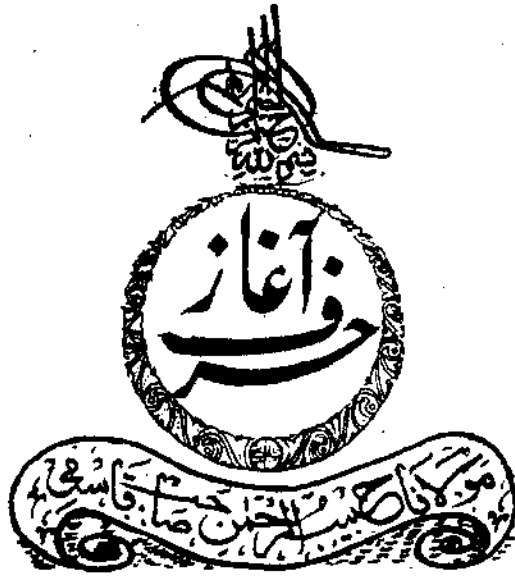 بسم الله الرحمن الرحیم
آغاز
حرف
مولانا حبیب الرحمٰن صاحب قاسمی